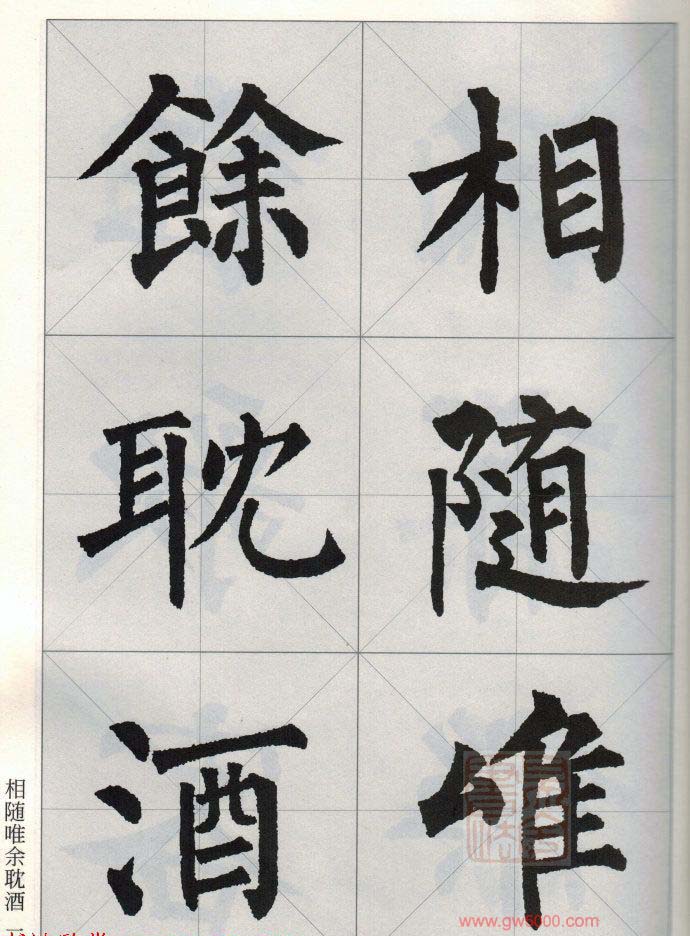 相随唯
餘耽酒
相随唯余耽酒 一
www.gw5000.com